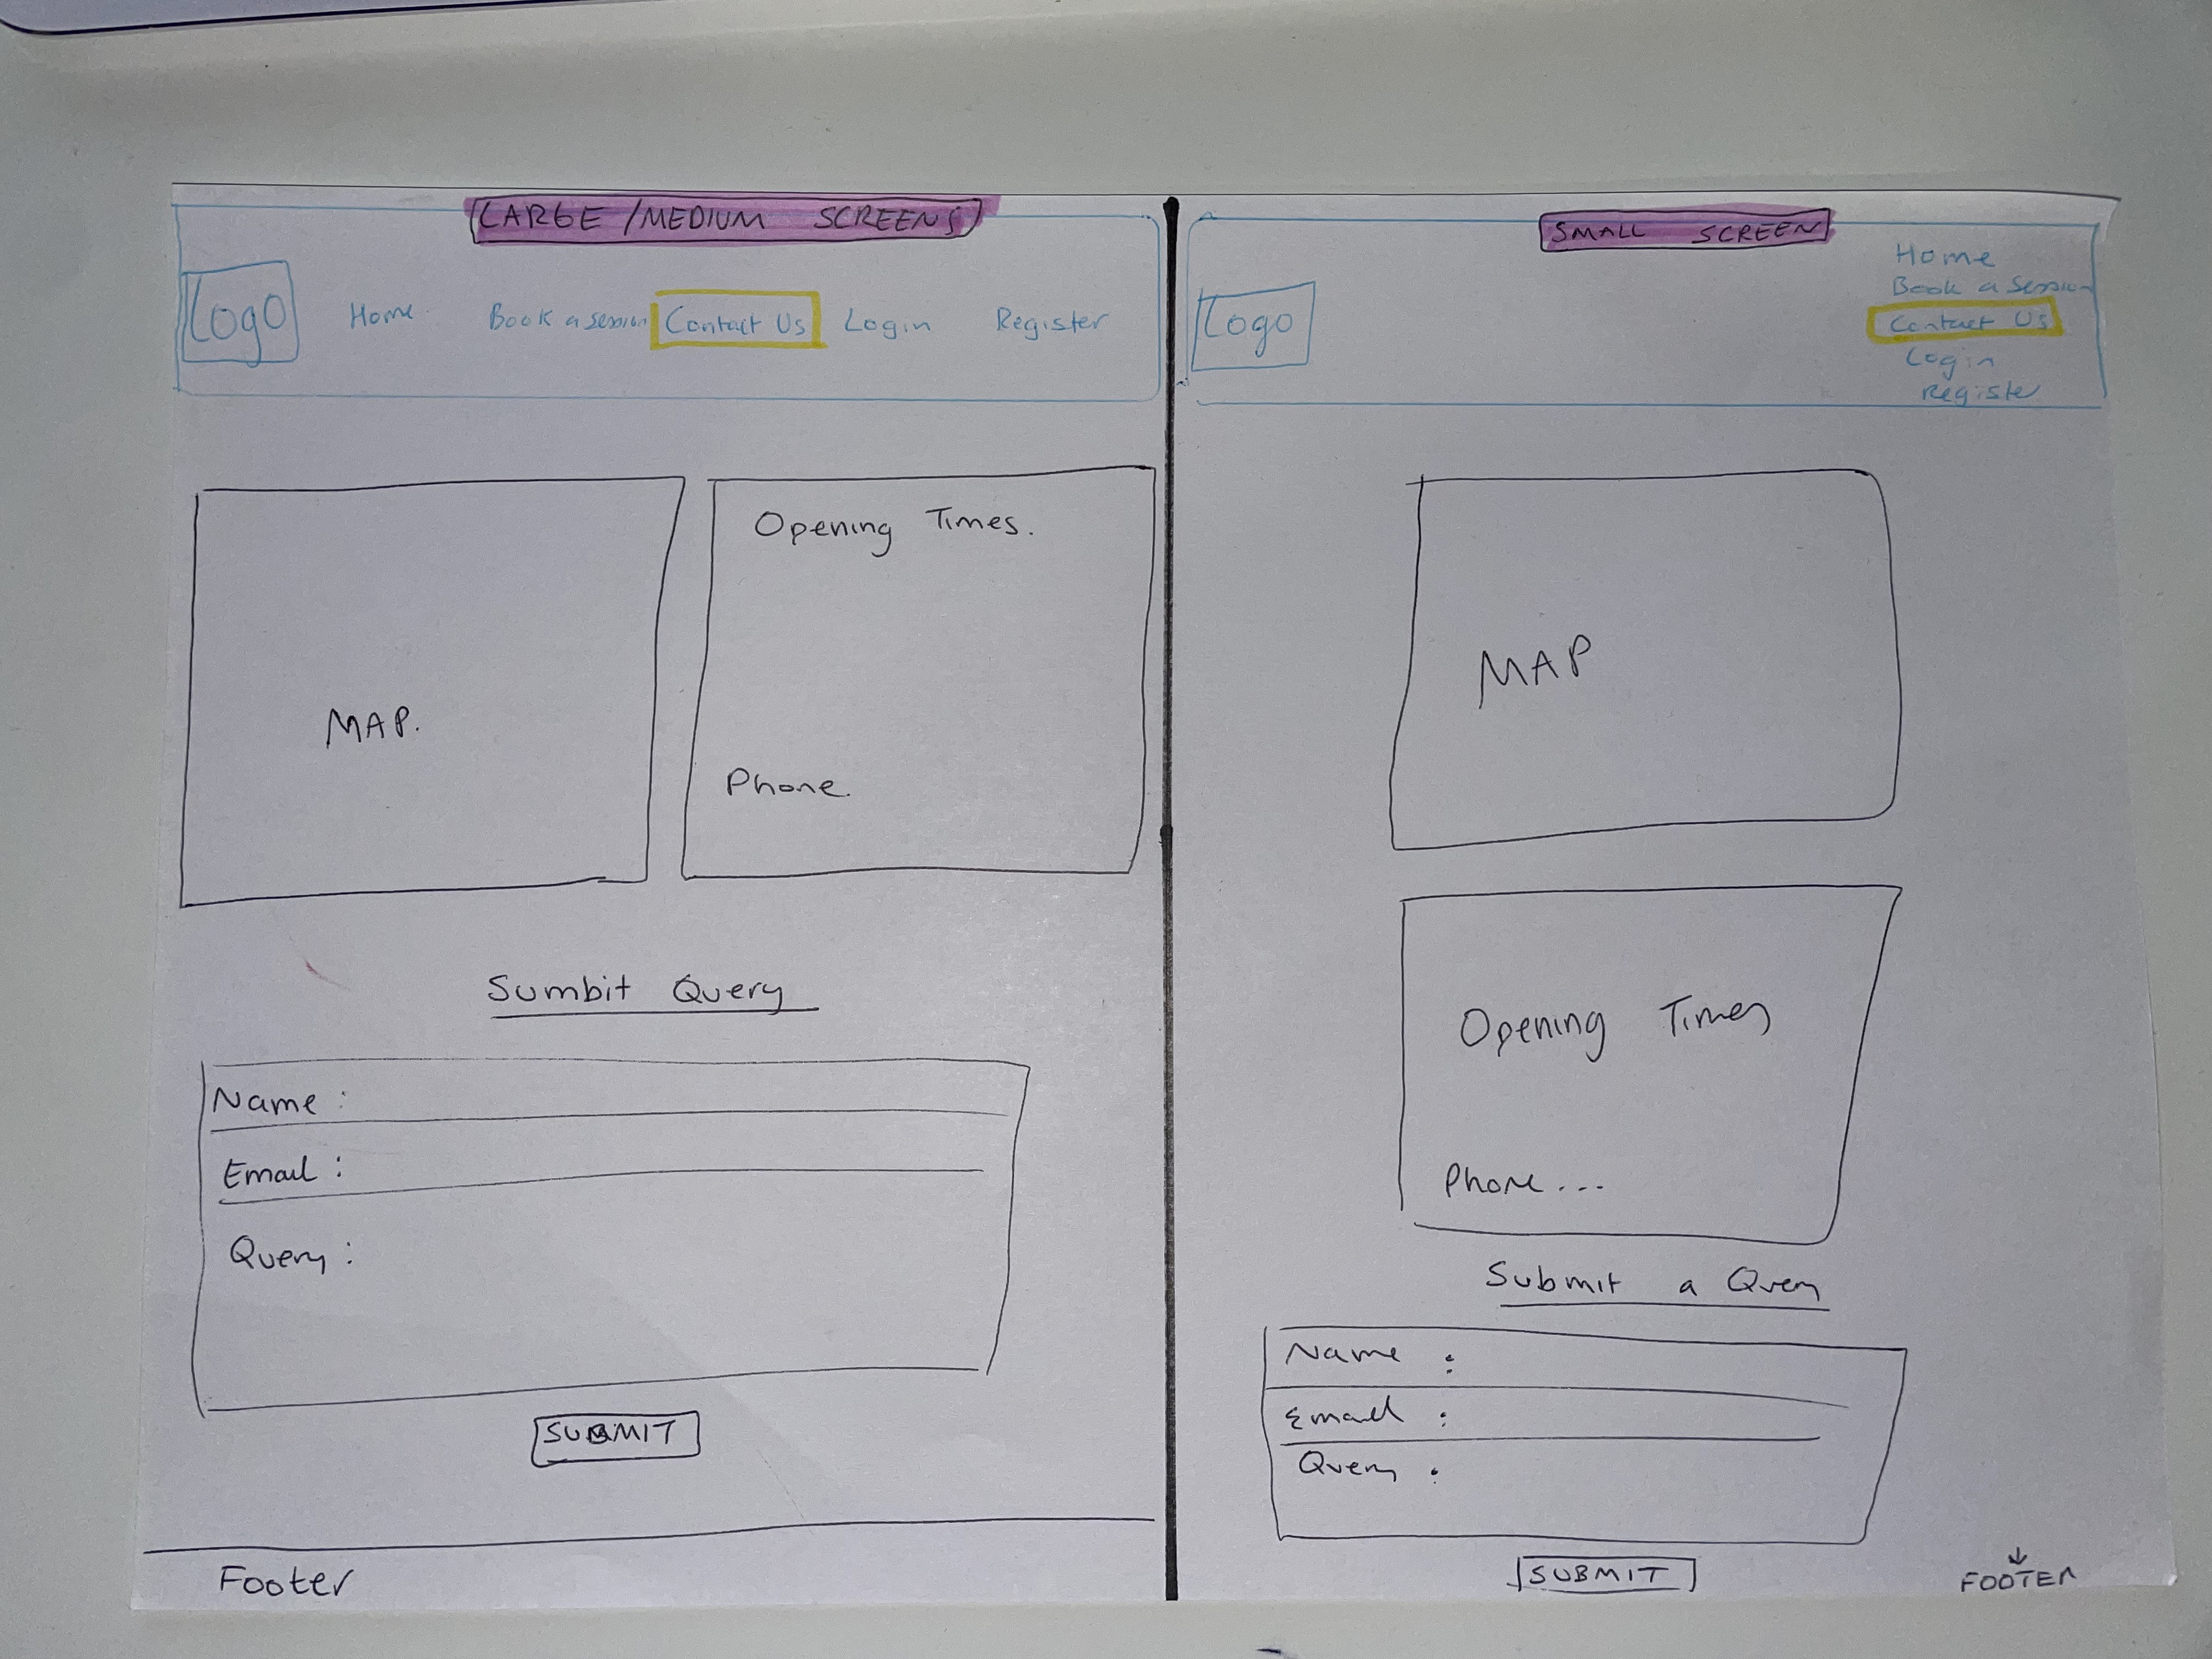 LARGE/MEDIUM SCREENS
Logo Home Book a session Contact Us Login Register
MAP.
Opening Times.
Phone.
Sumbit Query
Name :
Email :
Query :
SUBMIT
Footer
SMALL SCREEN
Logo
Home
Book a session
Contact Us
Login
Register
MAP
Opening Times
Phone...
Submit a Query
Name :
Email :
Query :
SUBMIT
FOOTER